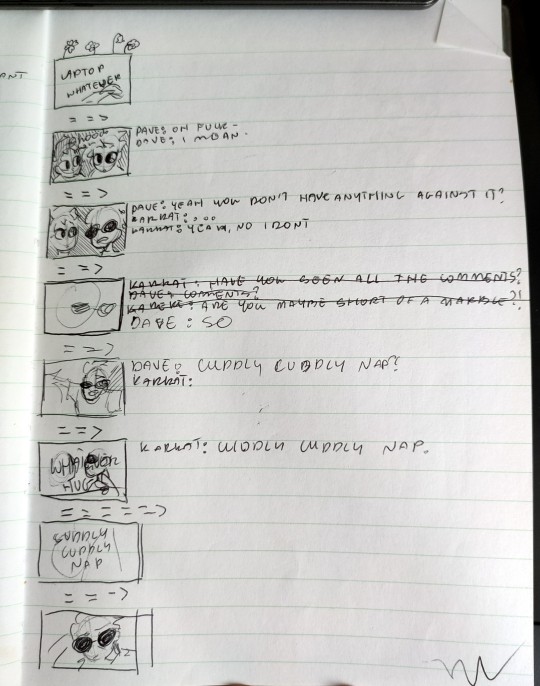 ONT
LAPTOP
WHATEVER
= = =>
DAVE: OH FUCK -
DAVE: I MEAN.
= = >
DAVE: YEAH YOU DON'T HAVE ANYTHING AGAINST IT?
KARKAT: ....
KARKAT: YEAH, NO I DONT
= = >
KARKAT: HAVE YOU SEEN ALL THE COMMENTS?
DAVE: COMMENTS?
KARKAT: ARE YOU MAYBE SHORT OF A MARBLE?!
DAVE: SO
= = >
DAVE: CUDDLY CUDDLY NAP?
KARKAT:
= = >
KARKAT: CUDDLY CUDDLY NAP.
WHATEVER
HUG
= = = = = =>
CUDDLY
CUDDLY
NAP
= = ->